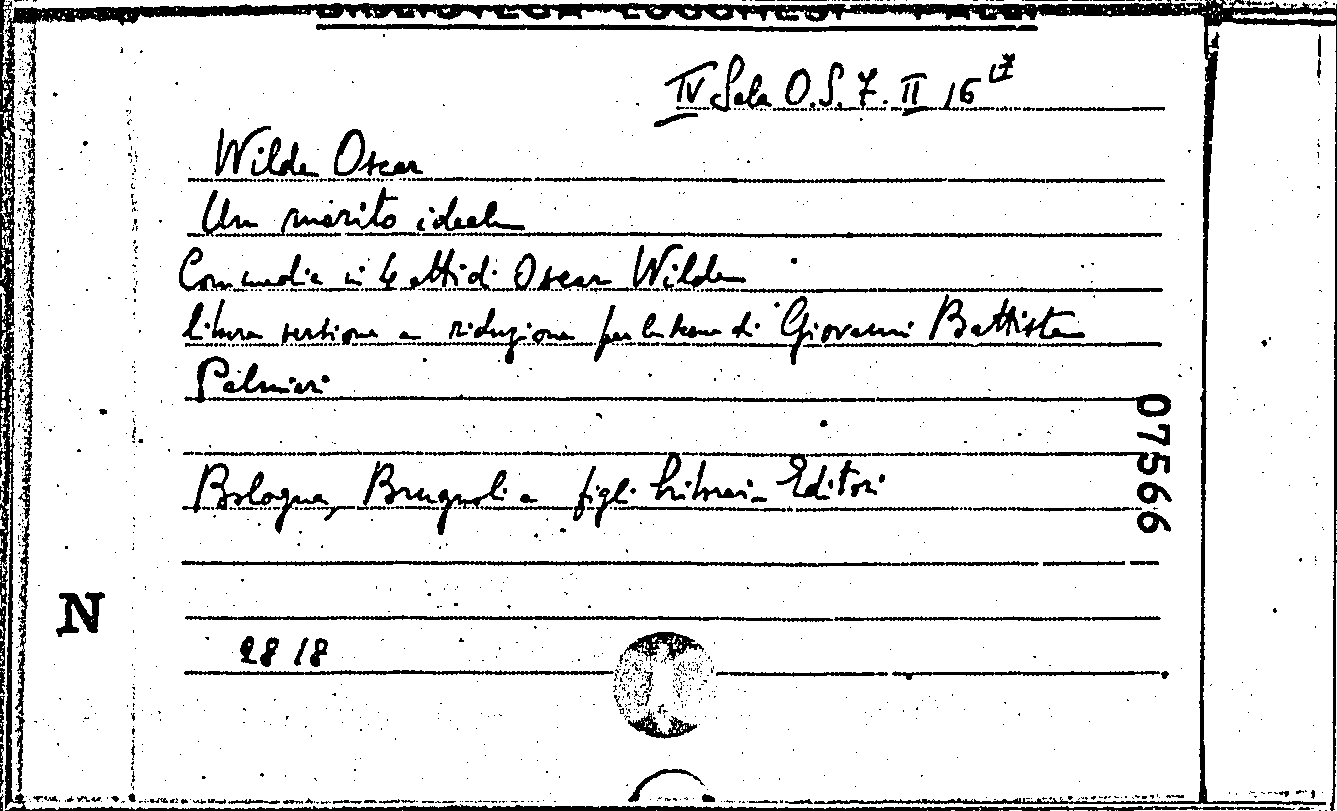 BIBLIOTECA LUCCHESI - PALLI
IV Sala O.S. 7. II 16 17
Wilde Oscar
Un marito ideale
Commedia in 4 atti di Oscar Wilde
libera versione e riduzione per le scene di Giovanni Battista
Palmieri
07566
Bologna, Brugnoli e figli Librai-Editori
N
2818